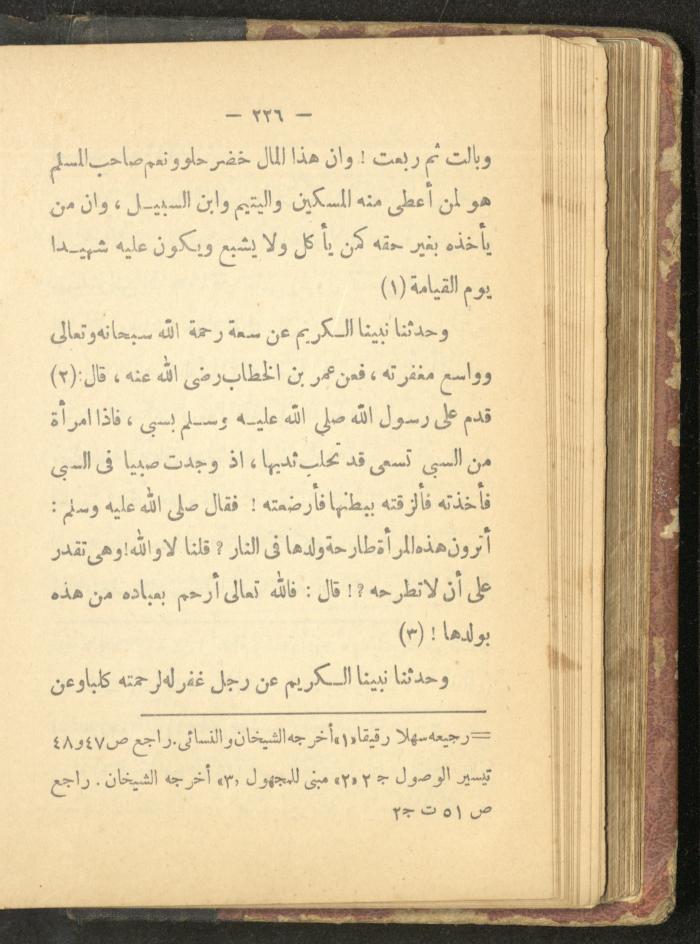 — ٢٢٦ —
وبالت ثم ربعت ! وان هذا المال خضر حلو ونعم صاحب المسلم
هو لمن أعطى منه المسكين واليتيم وابن السبيل ، وان من
يأخذه بغير حقه كمن يأكل ولا يشبع ويكون عليه شهيدا
يوم القيامة (١)
وحدثنا نبينا الكريم عن سعة رحمة الله سبحانه وتعالى
وواسع مغفرته ، فعن عمر بن الخطاب رضى الله عنه ، قال : (٢)
قدم على رسول الله صلى الله عليه وسلم بسبي ، فاذا امرأة
من السبي تسعى قد تحلب ثديها ، اذ وجدت صبيا فى السبي
فأخذته فألزقته ببطنها فأرضعته ! فقال صلى الله عليه وسلم :
أترون هذه المرأة طارحة ولدها فى النار ? قلنا لا والله ! وهى تقدر
على أن لا تطرحه ?! قال : فالله تعالى أرحم بعباده من هذه
بولدها ! (٣)
وحدثنا نبينا الكريم عن رجل غفر له لرحمته كلبا وعن
= رجيعه سهلا رقيقا «١» أخرجه الشيخان والنسائى . راجع ص ٤٧ و ٤٨
تيسير الوصول ج ٢ «٢» مبنى للمجهول «٣» أخرجه الشيخان . راجع
ص ٥١ ت ج ٢